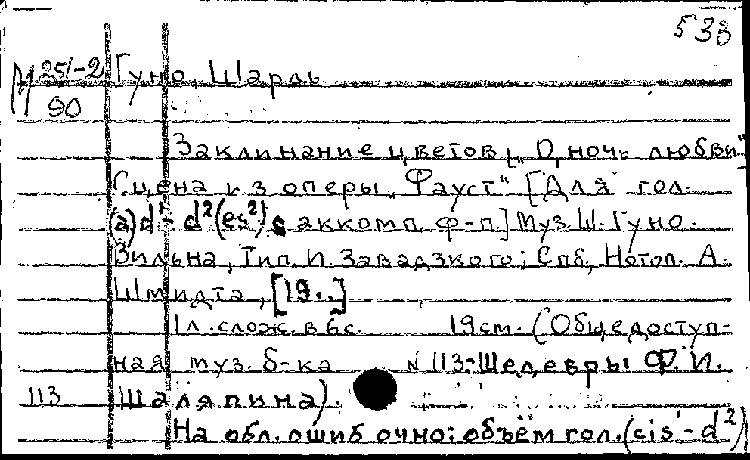 538
М 251-2 Гуно, Шарль
90
Заклинание цветов „О, ночь любви"
Сцена из оперы „Фауст" [Для гол.
(a) d¹- d²(es²) с аккомп. ф-п.] Муз. Ш. Гуно.
Вильна, Тип. И. Завадзкого; Спб, Нотоп. А.
Шмидта, [19..]
1 л. слож. в 6 с. 19 см. (Общедоступ-
ная муз. б-ка N 113-Шедевры Ф. И.
113 Шаляпина).
На обл. ошибочно: объём гол. (cis¹- d²)